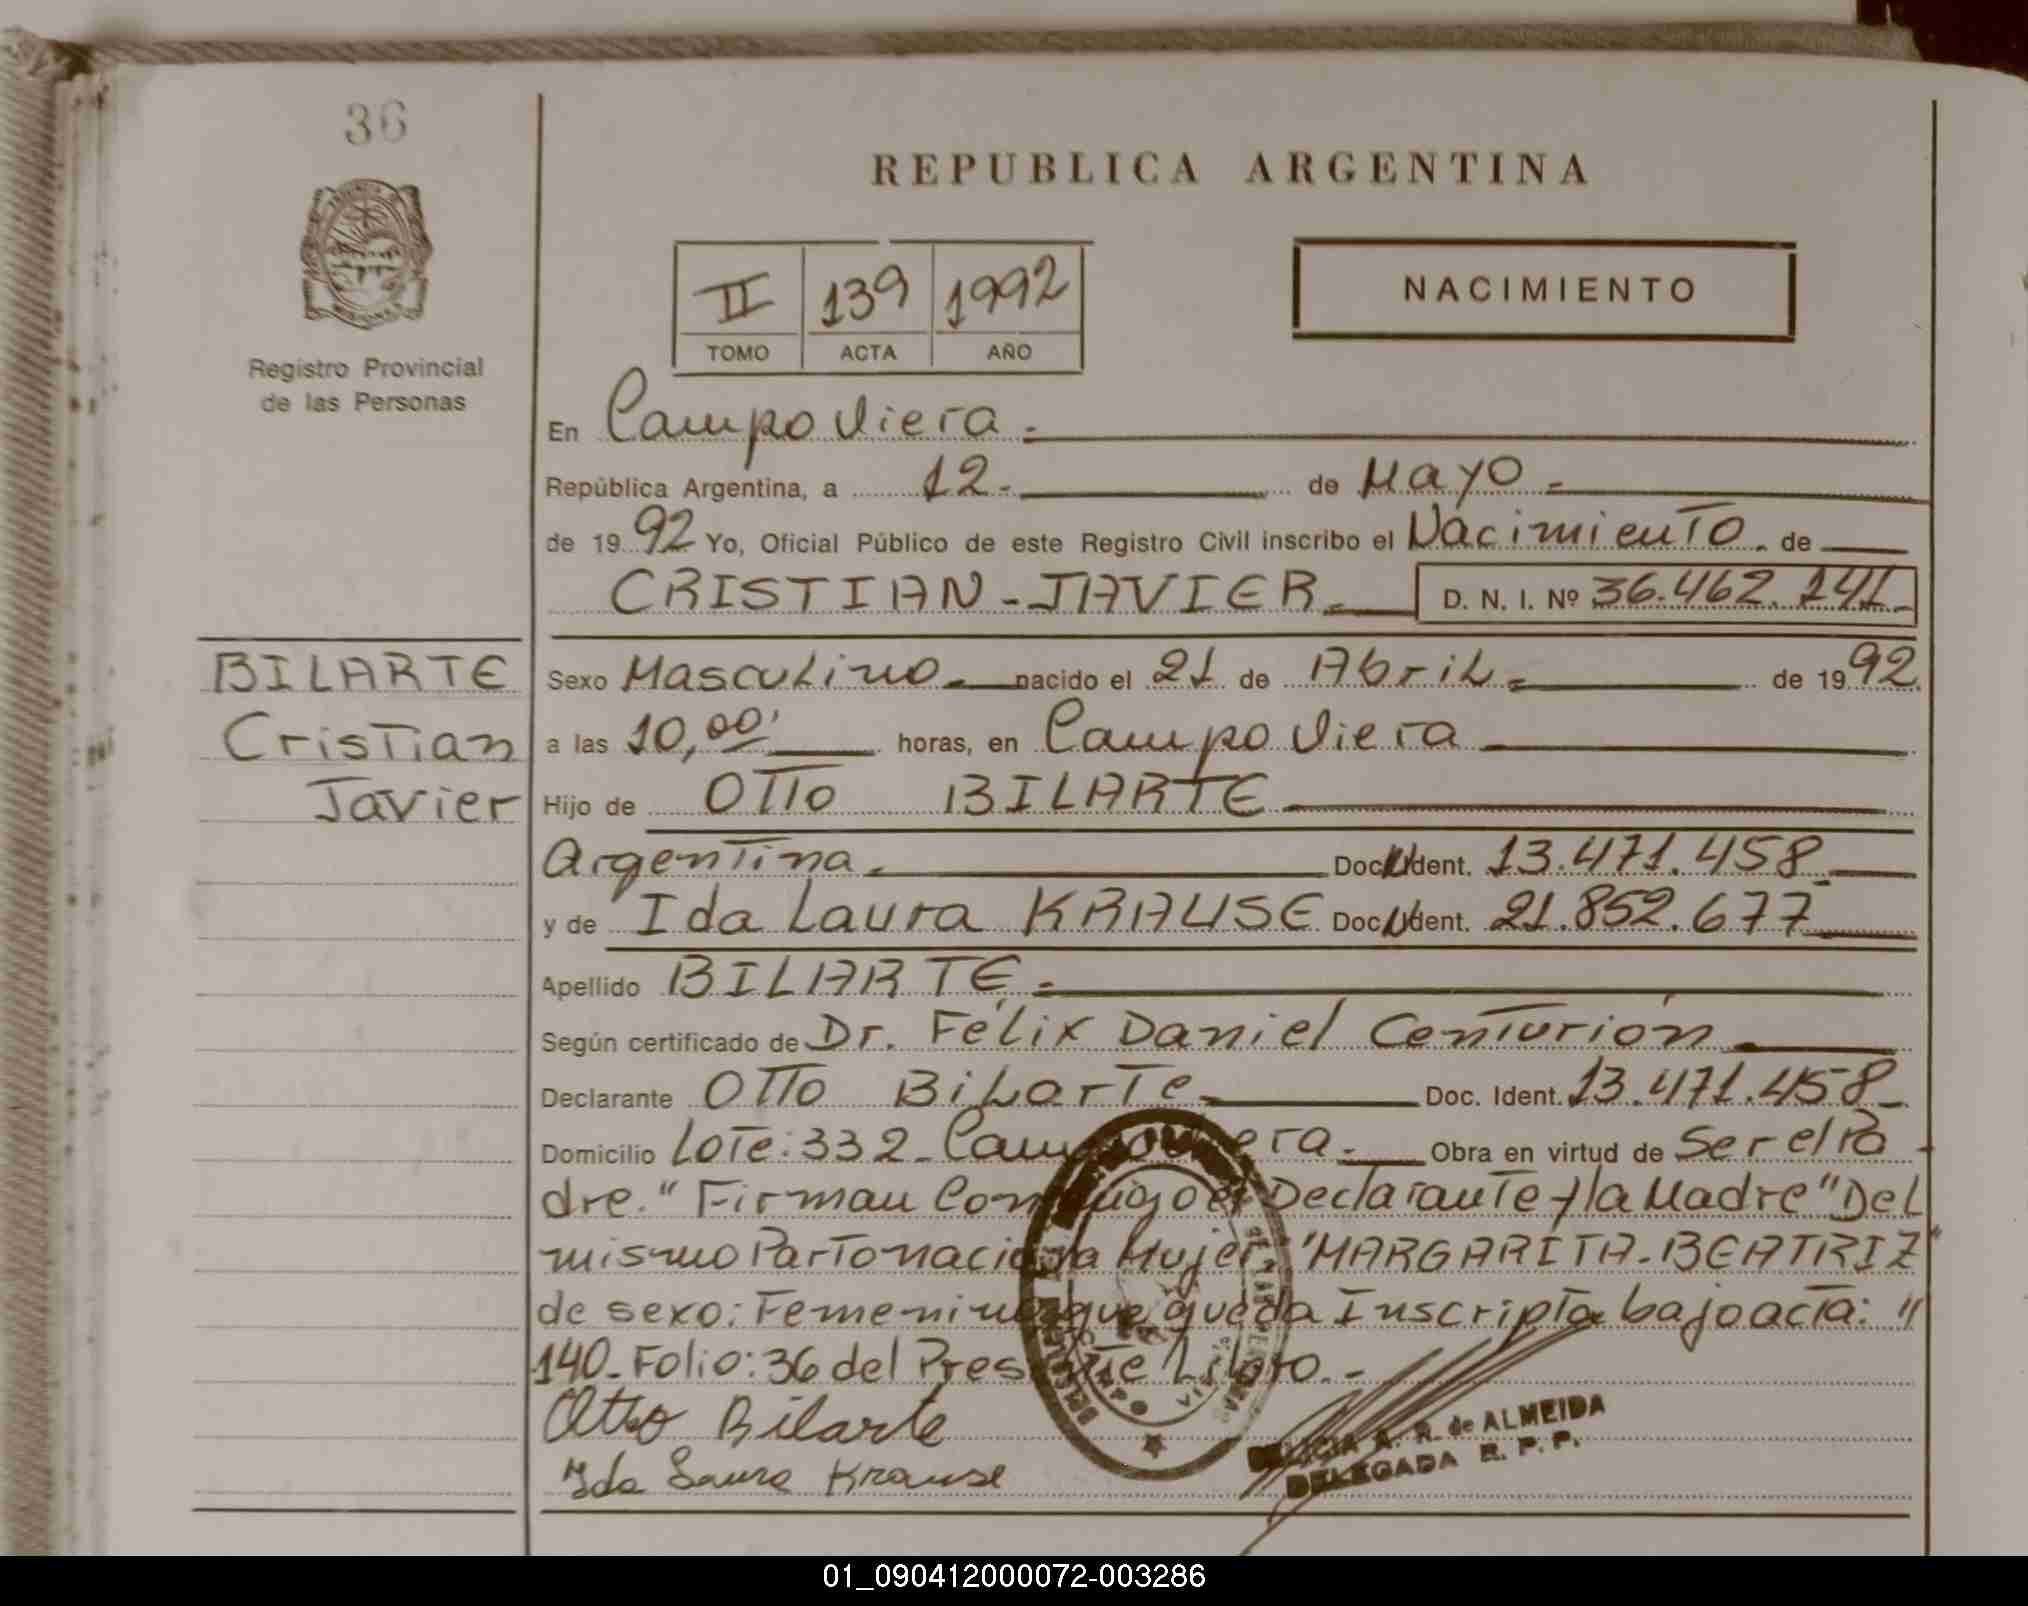 36
REPUBLICA ARGENTINA
II 139 1992
TOMO ACTA AÑO
NACIMIENTO
Registro Provincial
de las Personas
En Campo Viera.
República Argentina, a 12. de Mayo
de 1992 Yo, Oficial Público de este Registro Civil inscribo el Nacimiento. de
CRISTIAN-JAVIER. D. N. I. Nº 36.462.141
BILARTE
Cristian
Javier
Sexo Masculino nacido el 21 de Abril de 1992
a las 10,00' horas, en Campo Viera
Hijo de OTTO BILARTE
Argentina. Doc. Ident. 13.471.458
y de Ida Laura KRAUSE Doc. Ident. 21.852.677
Apellido BILARTE.
Según certificado de Dr. Félix Daniel Centurión
Declarante OTTO BiLarTe Doc. Ident. 13.471.458
Domicilio Lote: 332 - Campo Viera. Obra en virtud de Ser el Pa-
dre. "Firman Conmigo el Declarante y la Madre" Del
mismo Parto nació una Mujer "MARGARITA-BEATRIZ"
de sexo: Femenino que queda Inscripta bajo acta: "
140- Folio: 36 del Presente Libro.-
Otto Bilarte
Ida Laura Krause
A. R. de ALMEIDA
DELEGADA R. P. P.
01_090412000072-003286